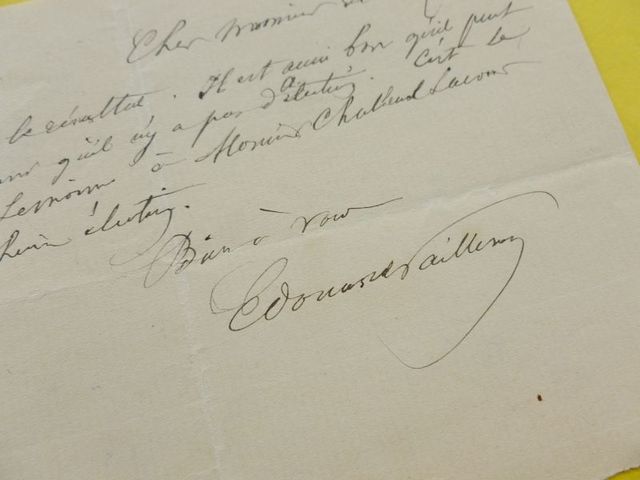 Cher monsieur
le résultat. Il est aussi bon qu'il peut
qu'il n'y a pas d'élection. C'est le
à Monsieur Challemel Lacour
élection.
Bien à vous
Edouard Pailleron